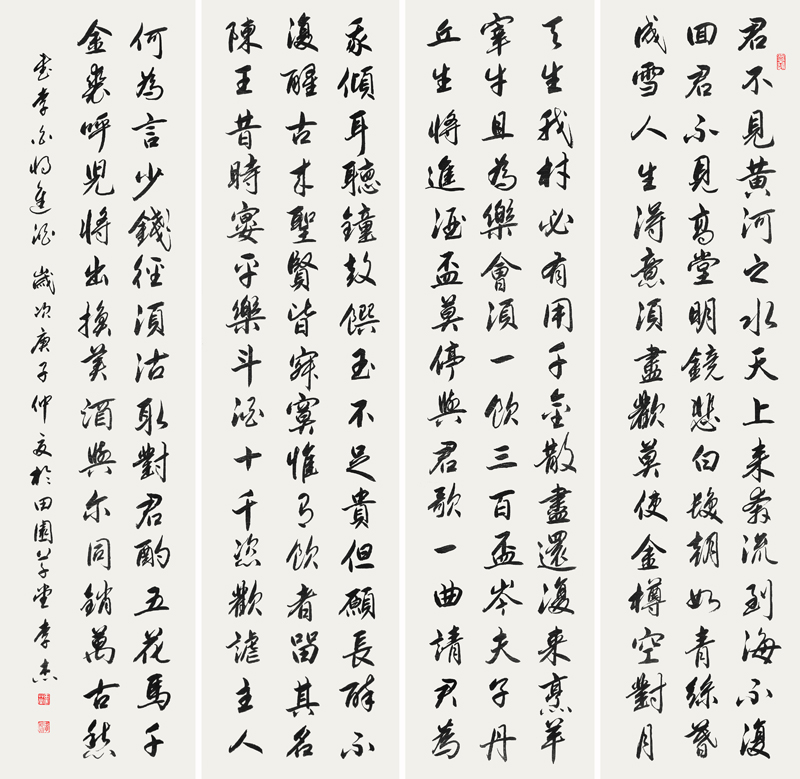 君不見黃河之水天上来奔流到海不復
回君不見高堂明鏡悲白髮朝如青絲暮
成雪人生得意須盡歡莫使金樽空對月
天生我材必有用千金散盡還復来烹羊
宰牛且為樂會須一飲三百盃岑夫子丹
丘生將進酒盃莫停與君歌一曲請君為
我傾耳聽鐘鼓饌玉不足貴但願長醉不
復醒古来聖賢皆寂寞惟有飲者留其名
陳王昔時宴平樂斗酒十千恣歡謔主人
何為言少錢徑須沽取對君酌五花馬千
金裘呼兒將出換美酒與尔同銷萬古愁
書李白將進酒 歲次庚子仲夏於田園草堂李杰